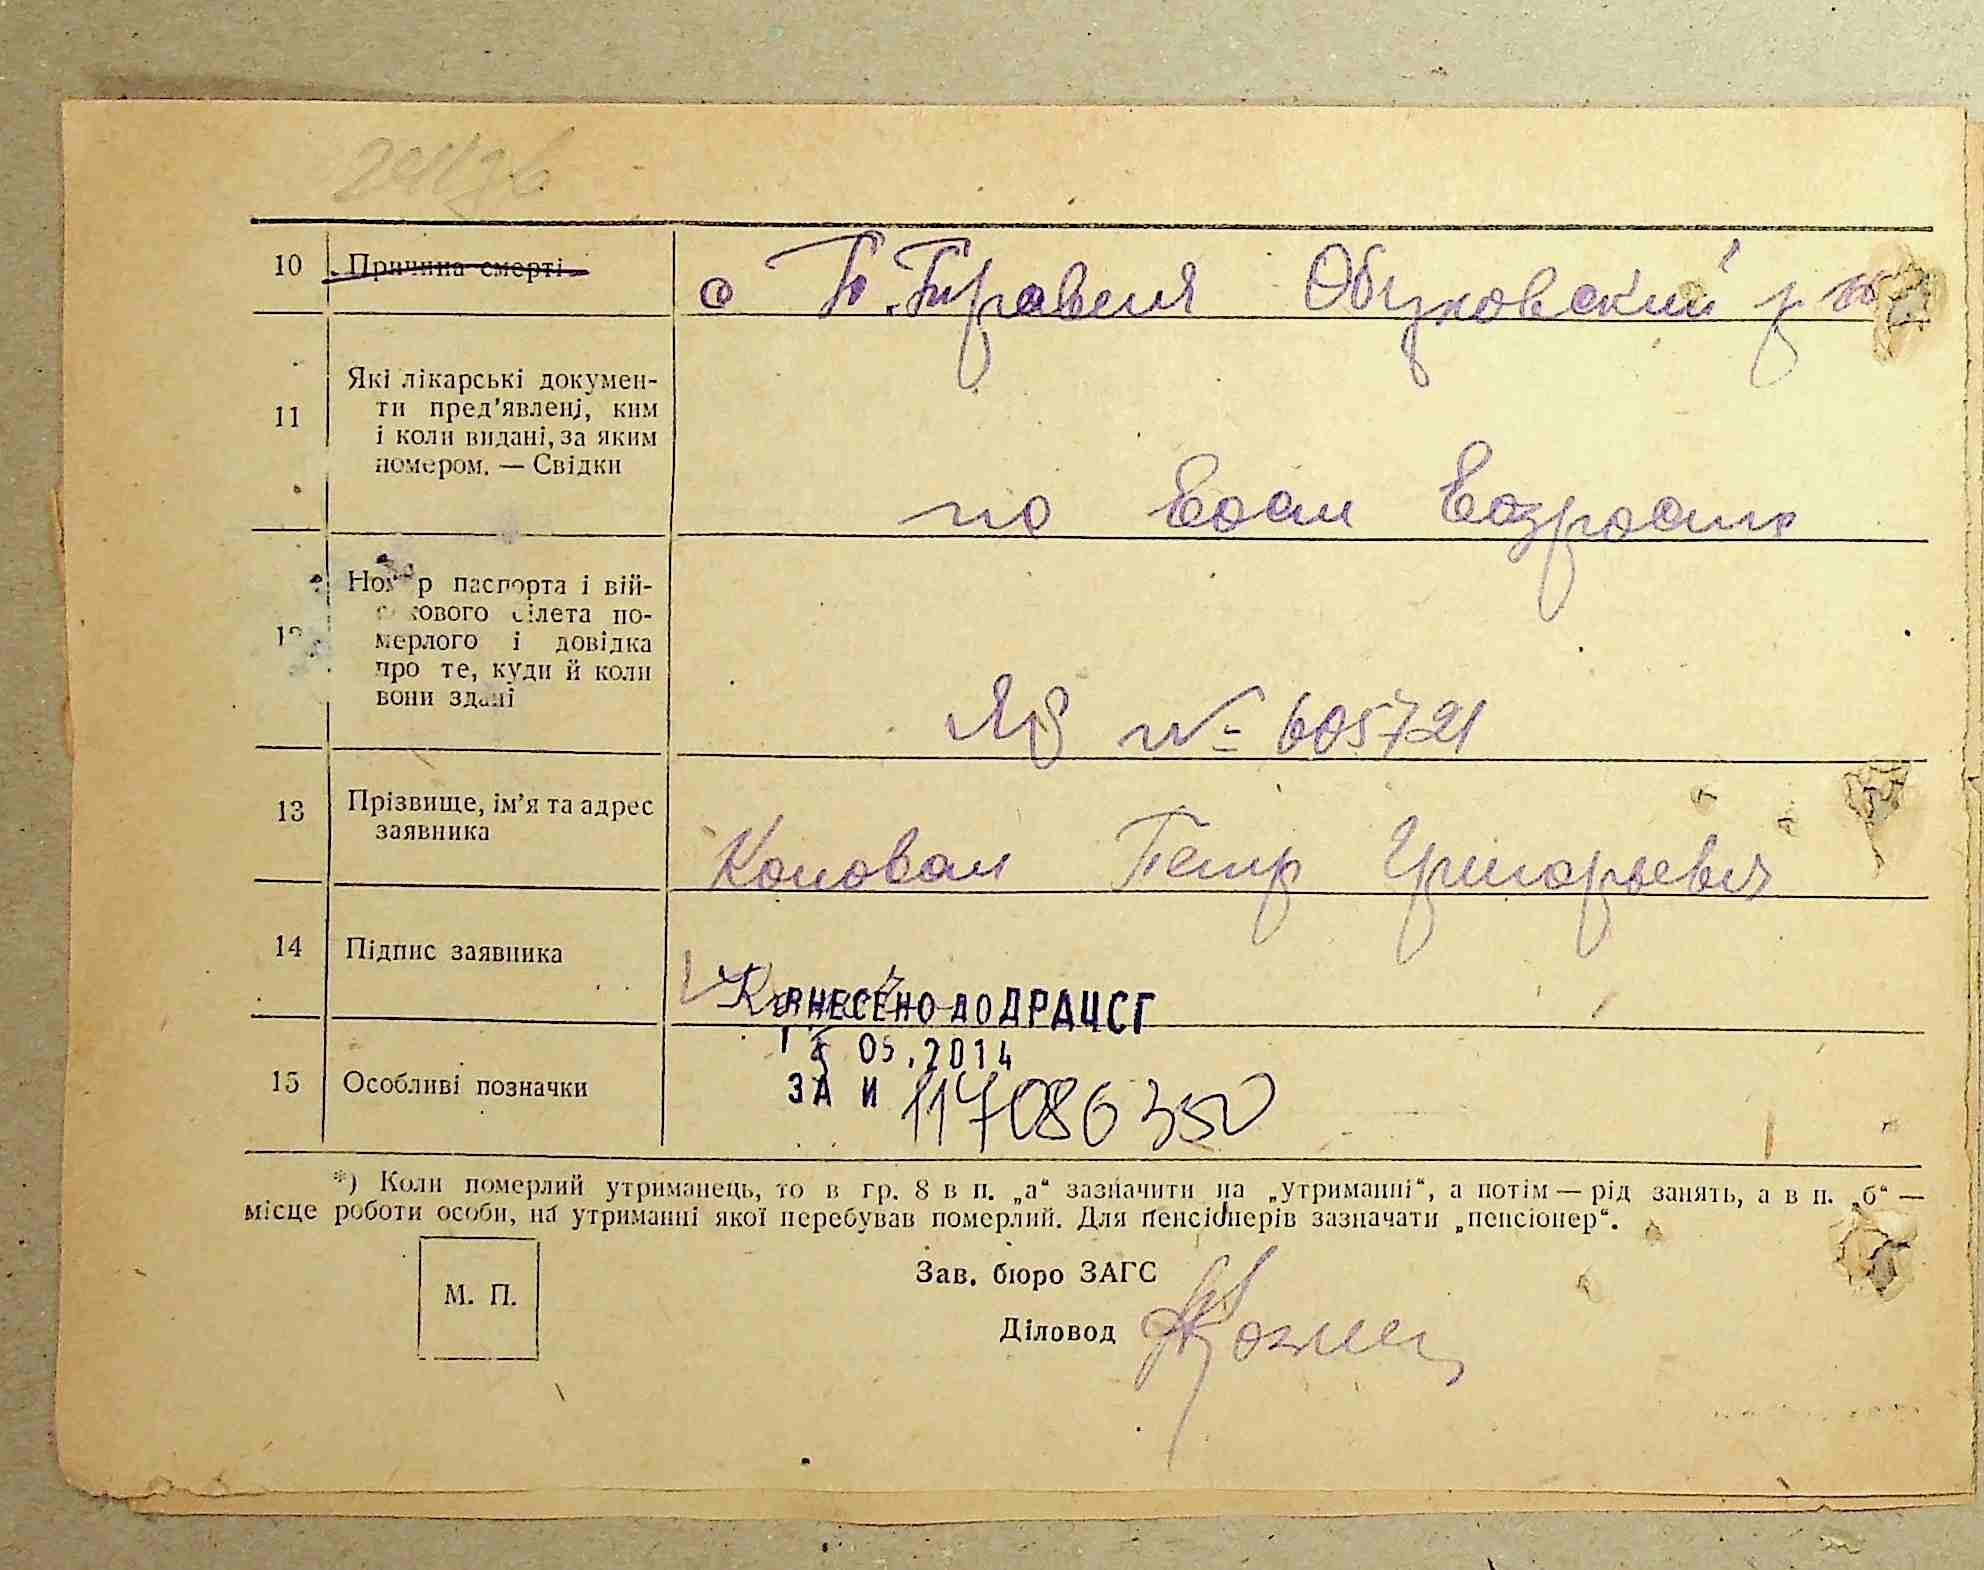 10 Причина смерті с Обуховский р н
11 Які лікарські докумен-
ти пред'явлені, ким
і коли видані, за яким
номером. — Свідки
по
12 Номер паспорта і вій-
ськового білета по-
мерлого і довідка
про те, куди й коли
вони здані
№ 605721
13 Прізвище, ім'я та адрес
заявника
Коновал Петр Григорьевич
14 Підпис заявника
ВНЕСЕНО ДО ДРАЦСГ
05.2014
15 Особливі позначки
ЗА №
*) Коли померлий утриманець, то в гр. 8 в п. „а“ зазначити на „утриманні“, а потім — рід занять, а в п. „б“ —
місце роботи особи, на утриманні якої перебував померлий. Для пенсіонерів зазначати „пенсіонер“.
М. П.
Зав. бюро ЗАГС
Діловод